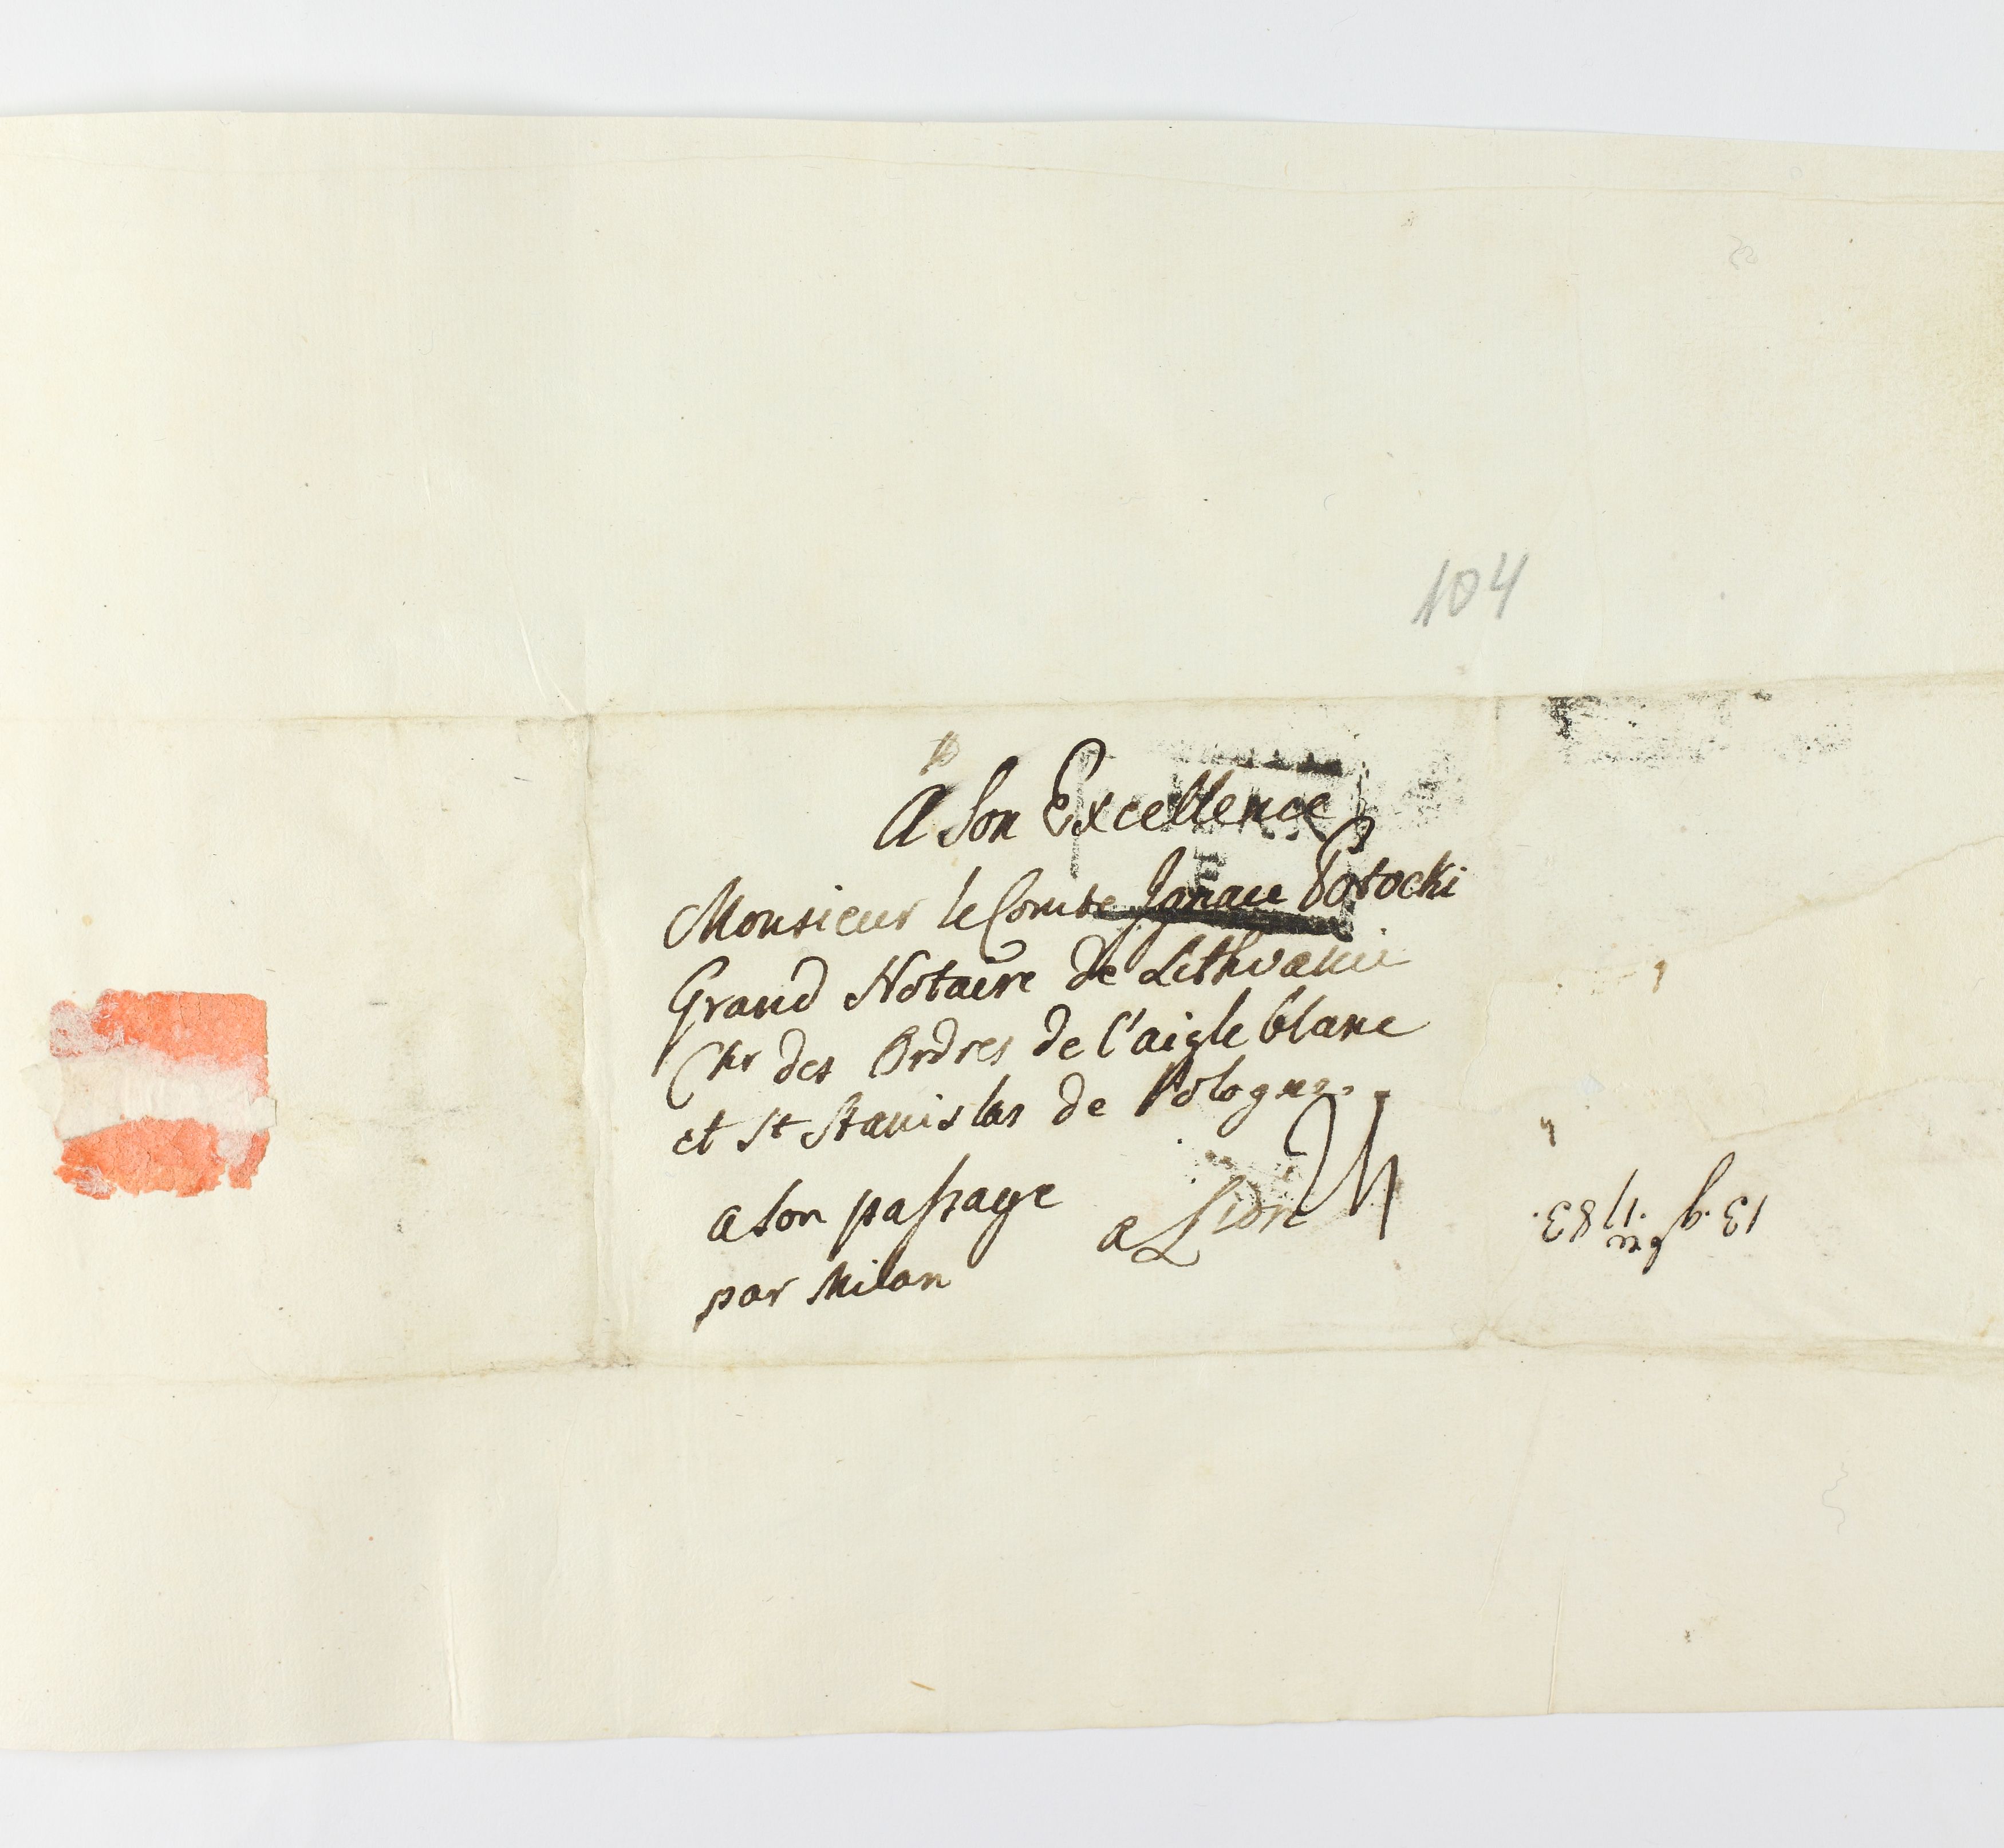 104
A Son Excellence
Monsieur le Comte Ignace Potocki
Grand Notaire de Lithvanie
Chr des Ordres de l'aigle blanc
et St Stanislas de Pologne.
a son passage
a Lion
par Milan
13. 9bre 1783.